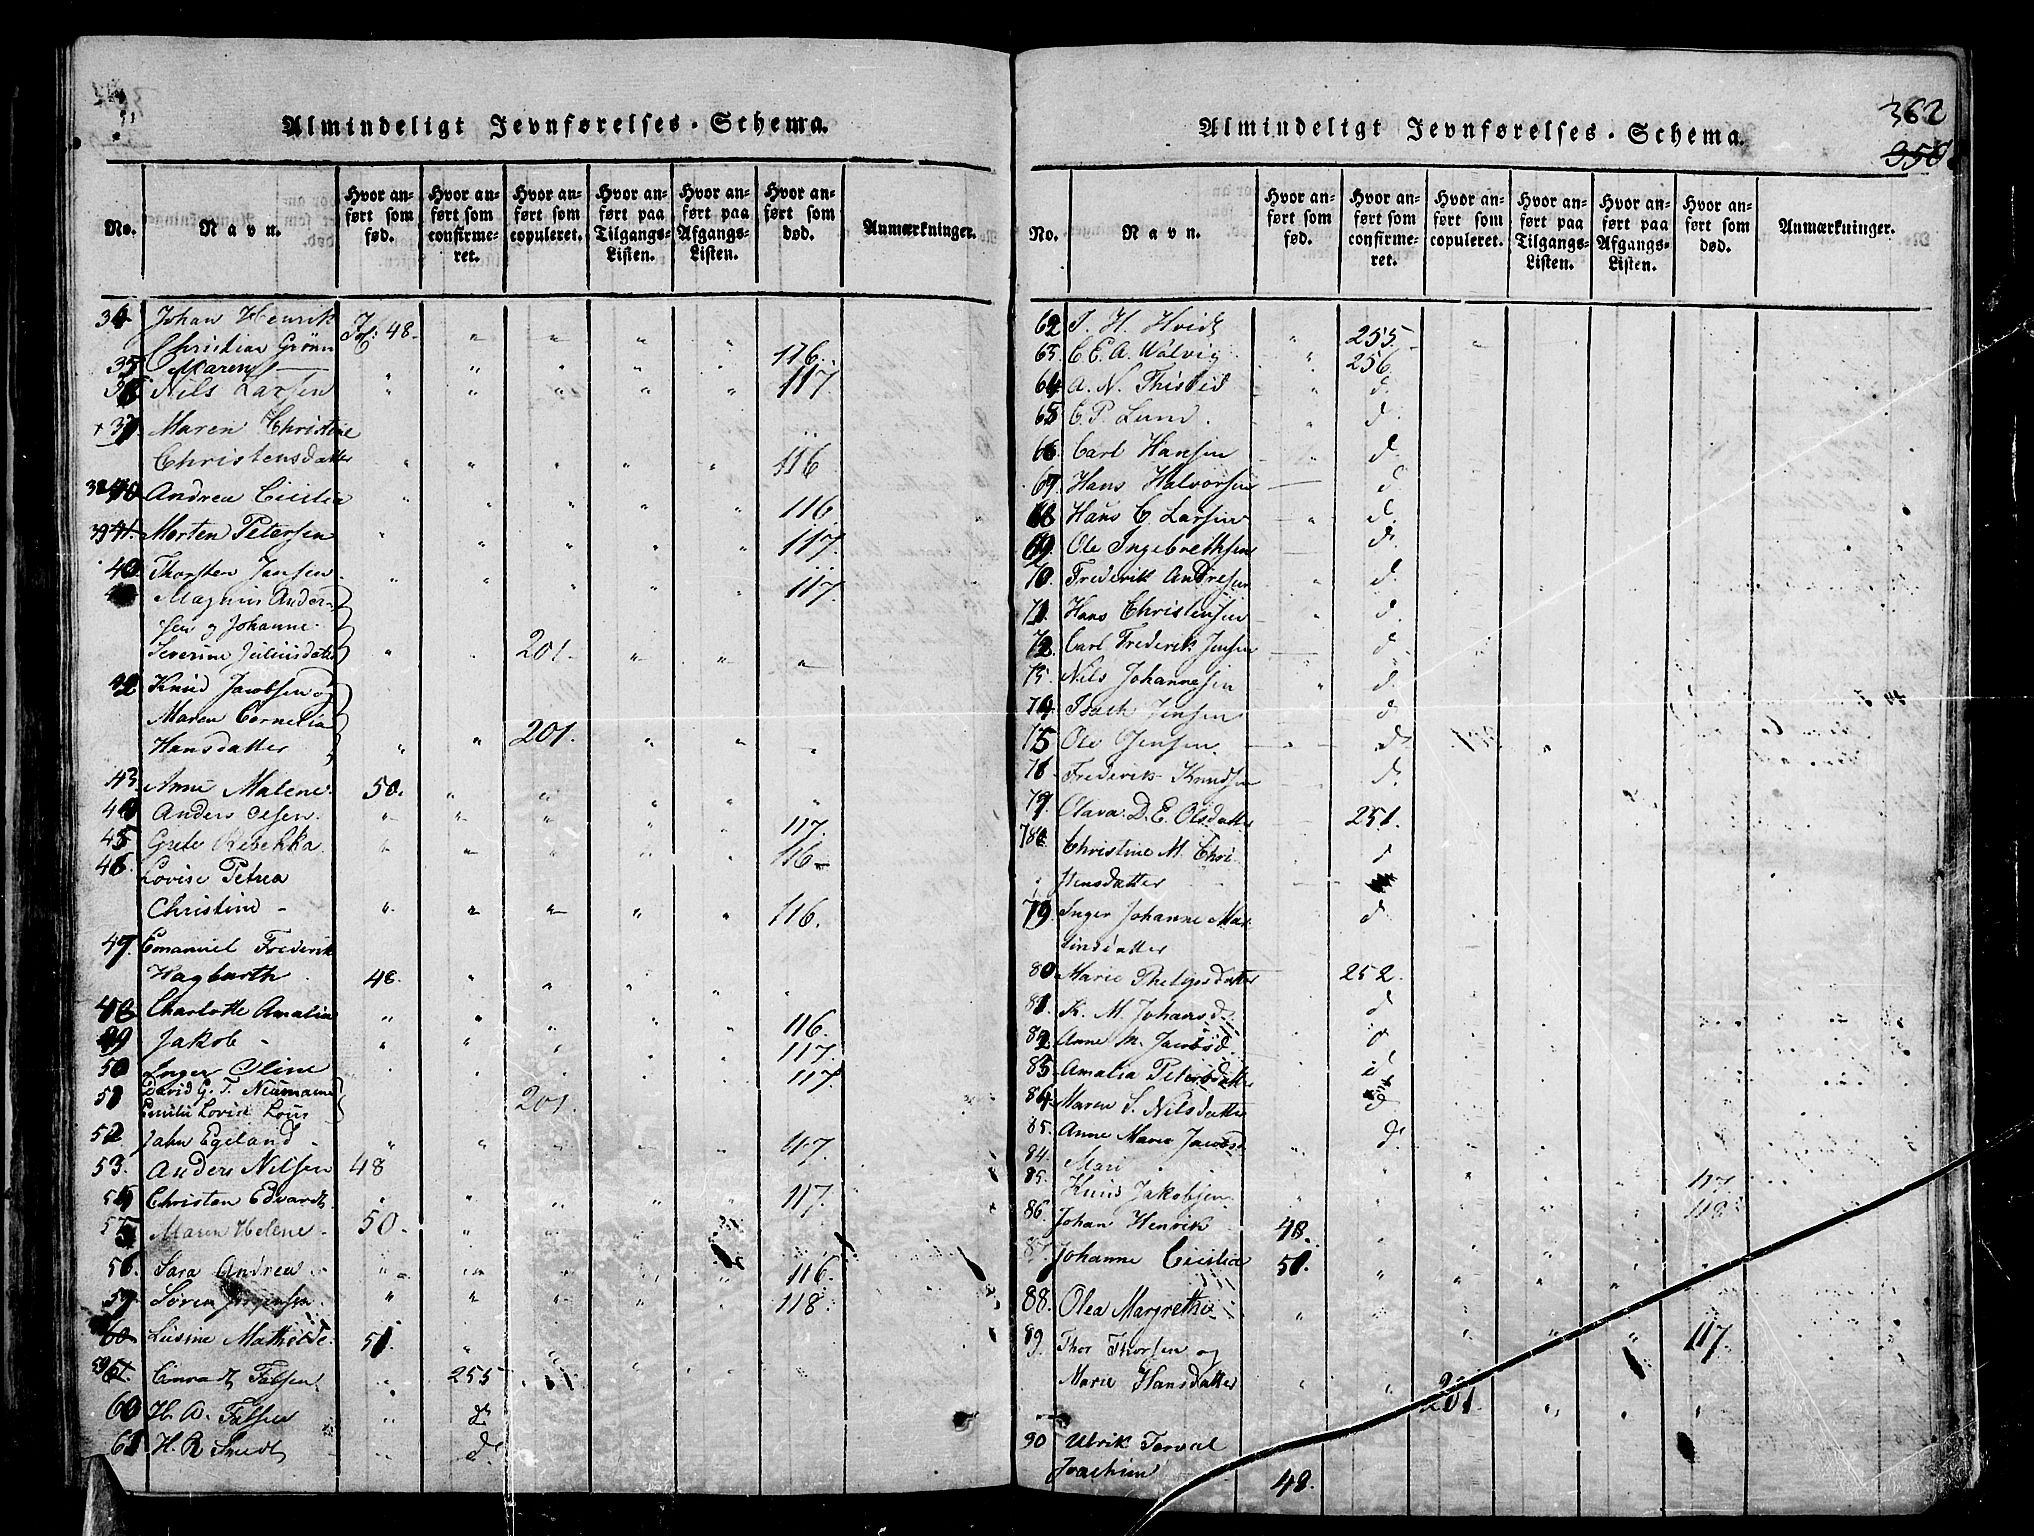 Almindeligt Jevnførelses-Schema.
No.
Navn.
Hvor anført som fød.
Hvor anført som confirmeret.
Hvor anført som copuleret.
Hvor anført paa Tilgangs-Listen.
Hvor anført paa Afgangs-Listen.
Hvor anført som død.
Anmærkninger.
34 Johan Henrik
Christian Grönn Fol: 48. " " " " " 116.
35 Maren
36 Nils Larsen " " " " " 117.
+37. Maren Christine
Christensdatter " " " " " 116
38 40 Andrea Cicilia " " " " " 116
39 41. Morten Petersen " " " " " 117.
40 Thorsten Jansen " " " " " 117.
Magnus Ander-
sen og Johanne
Severine Juliusdatter " 201. " " "
42 Knud Jacobsen og
Maren Cornelia
Hansdatter " " 201. " " "
43. Anne Malene. 50. " " " " "
44 Anders Olsen. " " " " " 117.
45 Grete Rebekka " " " " " 116
46. Lovise Petrea
Christine " " " " " 116.
47. Emanuel Frederik
Hagbarth 48. " " " " "
48 Charlotte Amalia " " " " " 116
49 Jakob " " " " 117.
50 Inger Oline 117
51 David G. T. Neumann
Emilie Lovise Lous 201.
52 Jahn Egeland " " " 117.
53. Anders Nilsen 48
54 Christen Edvardt " " " " " 117.
55 Maren Helene 50. " "
56. Sara Andrea " " " " 116.
57. Sören Jörgensen " " " " 118
60 Lusine Mathilde 51.
59 61. Conradt Falsen " 255
60 H. A. Falsen " d
61 H. R Smidt d.
Almindeligt Jevnførelses-Schema.
362
350
No.
Navn.
Hvor anført som fød.
Hvor anført som confirmeret.
Hvor anført som copuleret.
Hvor anført paa Tilgangs-Listen.
Hvor anført paa Afgangs-Listen.
Hvor anført som død.
Anmærkninger.
62 H. Hvidt " 255.
63. C. E. A. Wälvig " 256.
64 A. N. Thisted " d.
65 C. P. Lund. " d.
66 Carl Hansen " d.
67. Hans Halvorsen d.
68 Hans C. Larsen " d.
69. Ole Ingebrethsen d.
70 Frederik Andresen " d.
71. Hans Christensen " d.
72 Carl Frederik Jensen d
73. Nils Johannesen " d.
74 Jensen d
75 Ole Jensen. d.
76 Frederik Knudsen d.
77 Olava D. E. Olsdatter 251.
78 Christine M. Chri-
stensdatter d
79 Inger Johanne Mar-
tinsdatter d.
80 Marie Thelefsdatter 252.
81. K. M. Johansd. d
82 Anne M. Jacobsd. d
83 Amalia Petersdatter d
84 Maren S. Nilsdatter d
85. Anne Marie Jacobsd. d.
84. Mari 117
85. Knud Jakobsen 118
86. Johan Henrik 48.
87 Johanne Cicilia 51.
88. Olea Margrethe " " " " " 117.
89. Thor Thorsen og
Marie Hansdatter " " 201. " " "
90 Ulrik Torval
Joachim 48.